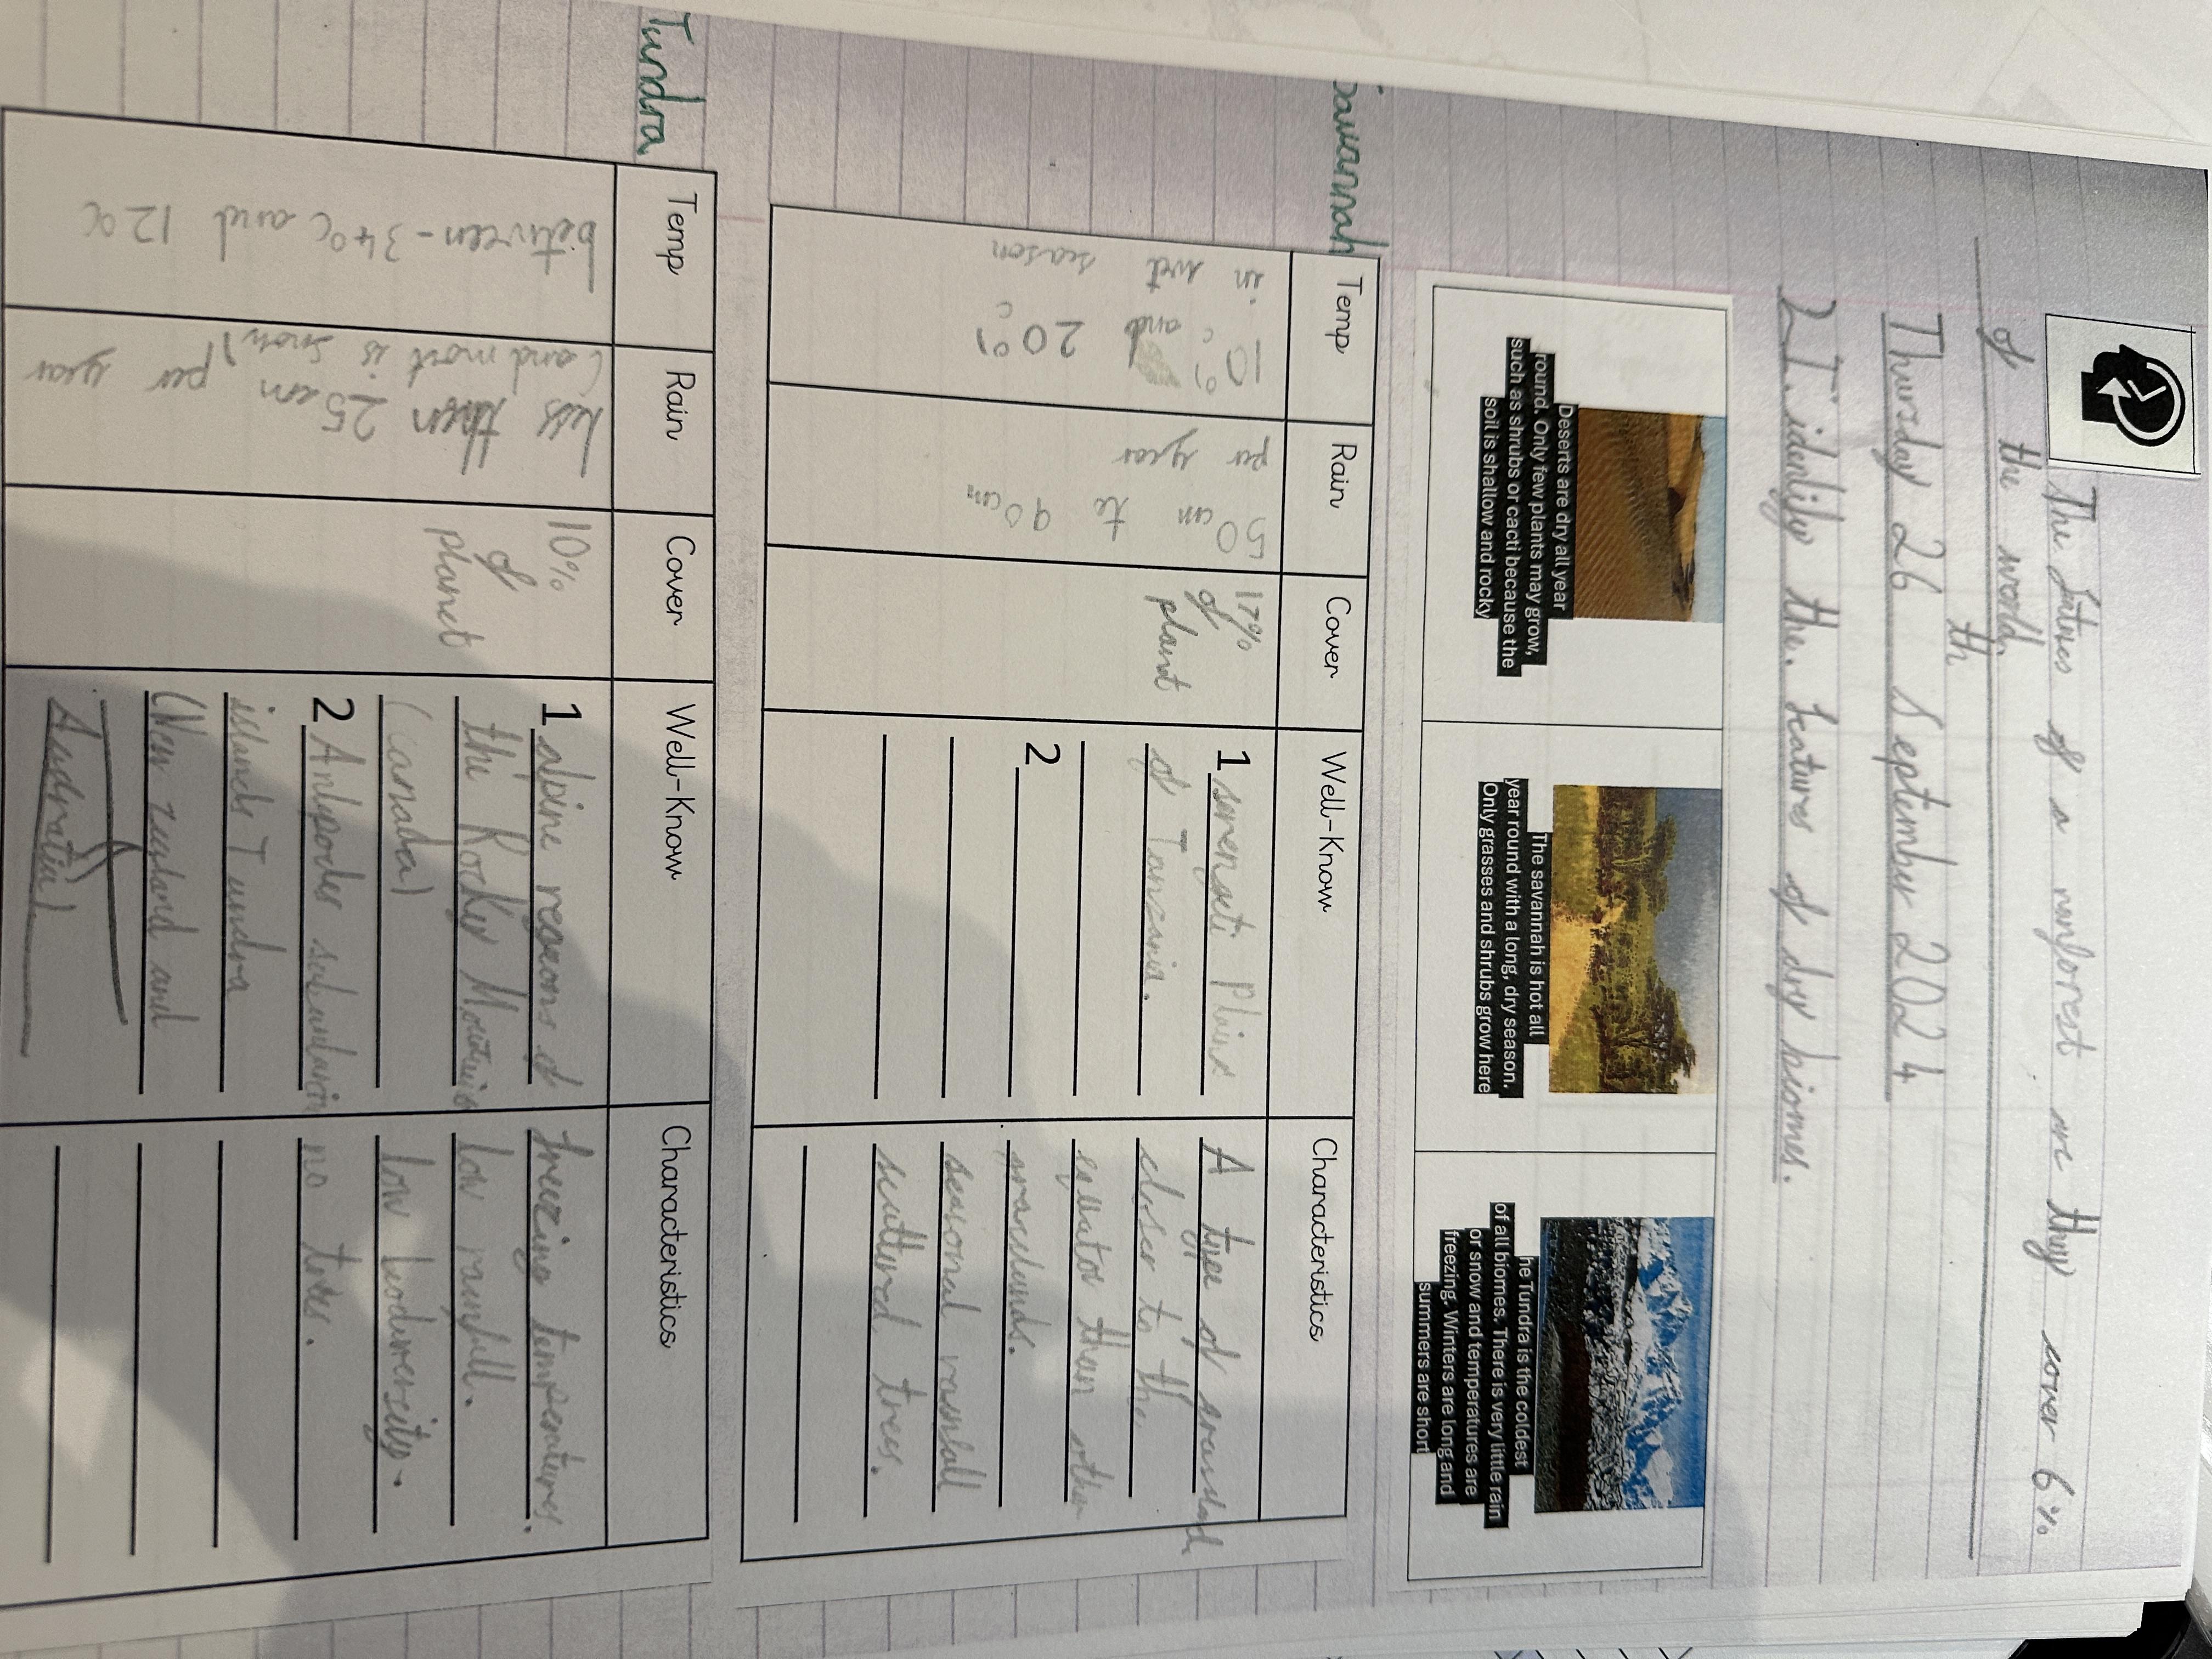 The futures of a rainforest are they cover 6%
of the world.
Thursday 26th September 2024
L.I. identify the features of dry biomes.
Deserts are dry all year
round. Only few plants may grow,
such as shrubs or cacti because the
soil is shallow and rocky
The savannah is hot all
year round with a long, dry season.
Only grasses and shrubs grow here
he Tundra is the coldest
of all biomes. There is very little rain
or snow and temperatures are
freezing. Winters are long and
summers are short
Savannah
Temp
Rain
Cover
Well-Know
Characteristics
10°c and 20°c
in wet season
50cm to 90cm
per year
17%
of
planet
1 serengeti Plains
of Tanzania.
2
A type of
closer to the
equator than other
grasslands.
seasonal rainfall
scattered trees.
Tundra
Temp
Rain
Cover
Well-Know
Characteristics
between -34°c and 12°c
less then 25cm per year
(and most is snow)
10%
of
planet
1 alpine regions of
the Rocky Mountains
(canada)
2 Antipodes subantarctic
islands Tundra
(New zealand and
Australia)
freezing temperatures.
low rainfall.
low biodiversity.
no trees.